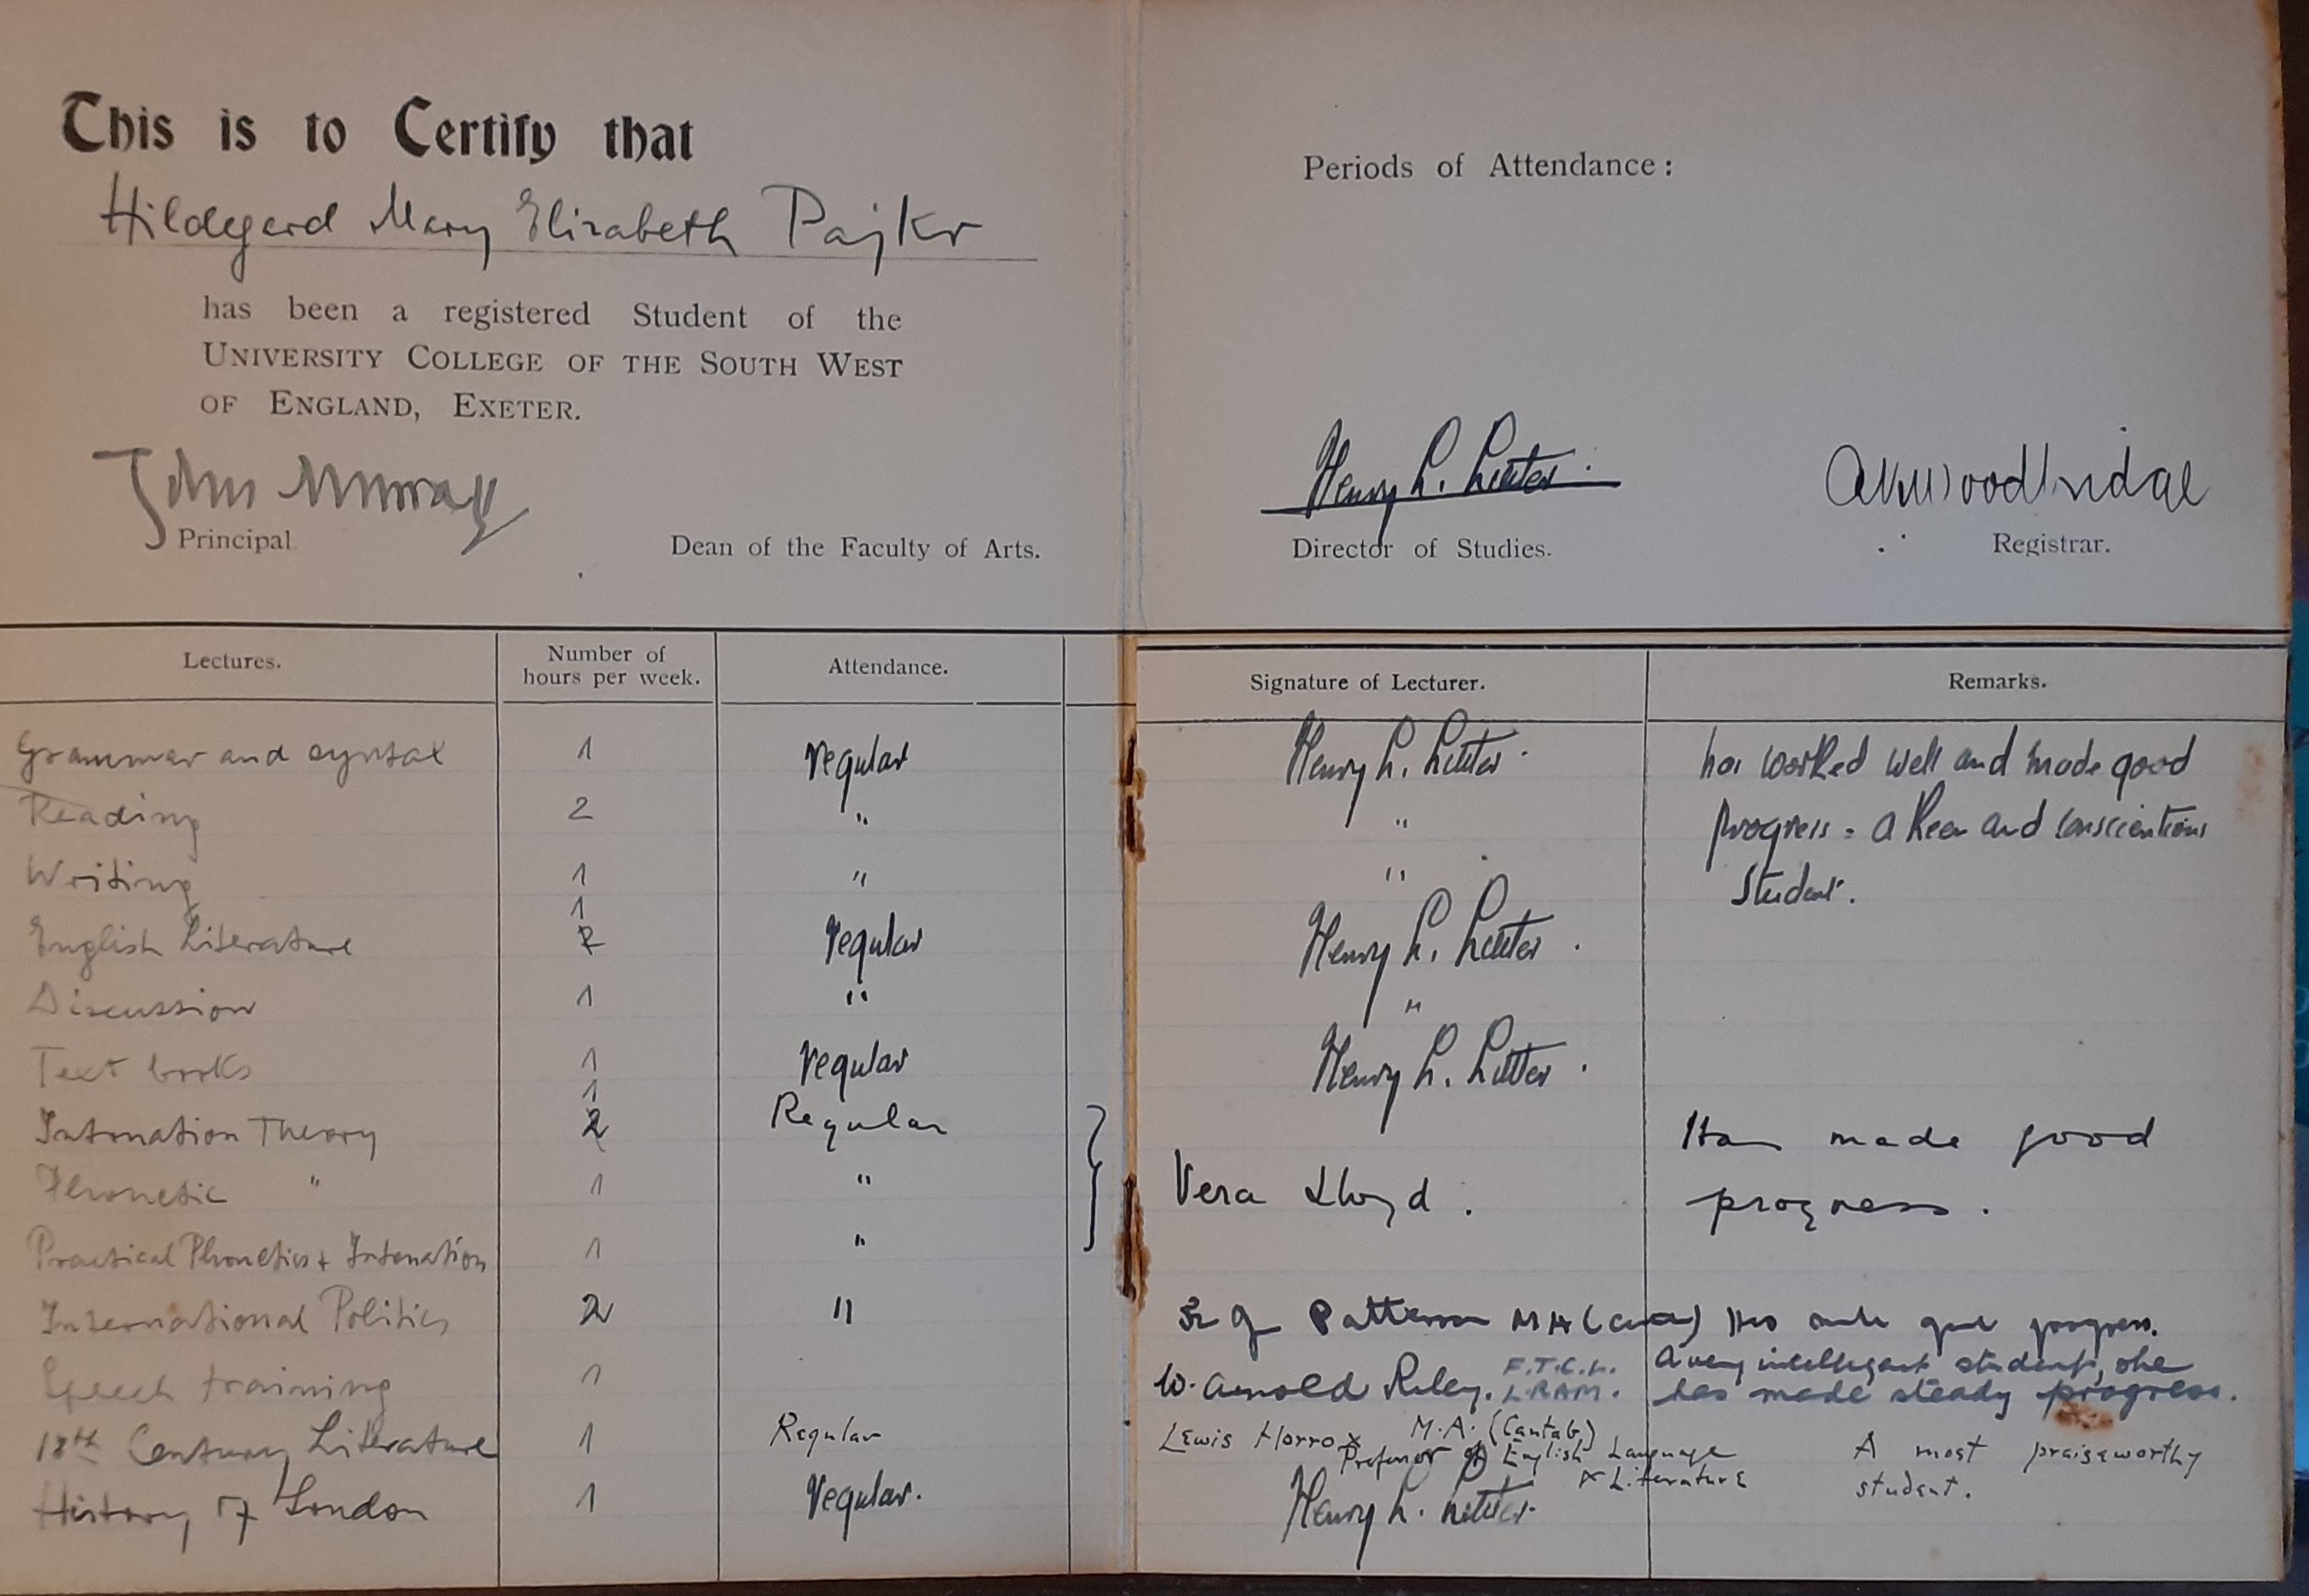 This is to Certify that
Hildegard Mary Elizabeth Pajkr
has been a registered Student of the
UNIVERSITY COLLEGE OF THE SOUTH WEST
OF ENGLAND, EXETER.
John Murray
Principal
Dean of the Faculty of Arts.
Periods of Attendance:
Henry L.
Director of Studies.
Registrar.
Lectures. Number of hours per week. Attendance. Signature of Lecturer. Remarks.
Grammar and syntax 1 regular Henry L. has worked well and made good
Reading 2 " " progress - a keen and conscientious
Writing 1 " " student.
1
English Literature 2 regular Henry L.
Discussion 1 " "
Text books 1 regular Henry L.
1
Intonation Theory 2 Regular Has made good
Phonetic " 1 " Vera Lloyd. progress.
Practical Phonetics + Intonation 1 "
International Politics 2 " Patterson MA Has made good progress.
Speech training 1 W. Arnold Riley. F.T.C.L. L.R.A.M. A very intelligent student, she
has made steady progress.
18th Century Literature 1 Regular Lewis Horrox M.A. (Cantab) A most praiseworthy
Professor of English Language
& Literature student.
History of London 1 regular. Henry L.